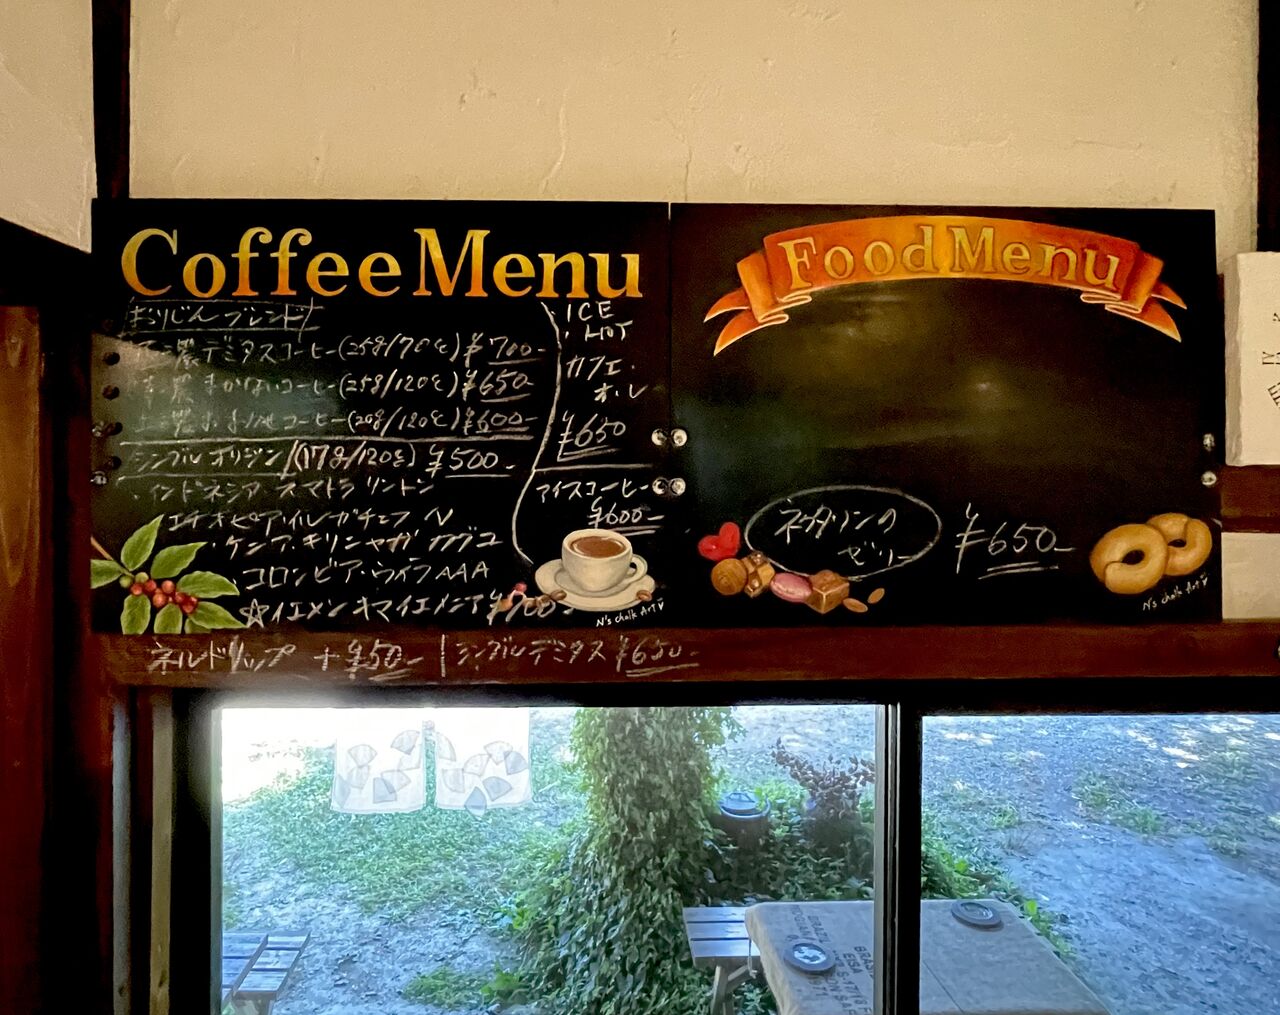 Coffee Menu
おりじんブレンド
濃デミタスコーヒー(25g/70cc) ¥700-
濃まかないコーヒー(25g/120cc) ¥650-
コーヒー(20g/120cc) ¥600-
シングルオリジン/(17g/120cc) ¥500-
・インドネシア・スマトラ リントン
・エチオピア・イルガチェフ N
・ケニア・キリニャガ
・コロンビア・ウイラ AAA
☆イエメン ¥700-
・ICE
・HOT
カフェ・
オ・レ
¥650
アイスコーヒー
¥600-
N's chalk Art
Food Menu
ネクタリンの
ゼリー
¥650-
N's chalk Art
ネルドリップ +¥50- | シングルデミタス ¥650-
BRAZIL